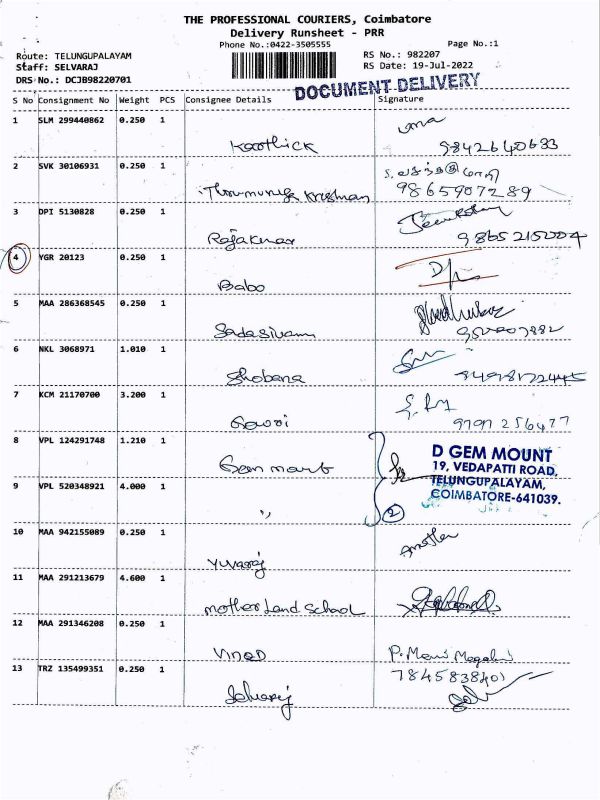 THE PROFESSIONAL COURIERS, Coimbatore
Delivery Runsheet - PRR
Phone No.:0422-3505555
Page No.:1
Route: TELUNGUPALAYAM
RS No.: 982207
Staff: SELVARAJ
RS Date: 19-Jul-2022
DRS No.: DCJB98220701
DOCUMENT DELIVERY
S No Consignment No Weight PCS Consignee Details Signature
1 SLM 299440862 0.250 1
Karthick 9842640633
2 SVK 30106931 0.250 1
Thirumuruga Krishnan 9865907289
3 DPI 5130828 0.250 1
Rajakumar 9865215004
4 YGR 20123 0.250 1
Babo
5 MAA 286368545 0.250 1
Sadasivam
6 NKL 3068971 1.010 1
Shobana
7 KCM 21170700 3.200 1
Gowri 9797256477
8 VPL 124291748 1.210 1
Gem mount
D GEM MOUNT
19, VEDAPATTI ROAD,
TELUNGUPALAYAM,
COIMBATORE-641039.
9 VPL 520348921 4.000 1
〃 2
10 MAA 942155089 0.250 1
Yuvaraj Amotha
11 MAA 291213679 4.600 1
Mother Land School
12 MAA 291346208 0.250 1
Vinod P. Mani Megalai
7845838401
13 TRZ 135499351 0.250 1
Selvaraj